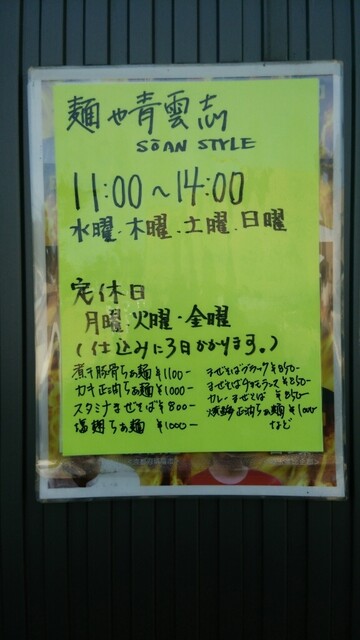 麺や青雲志
SōAN STYLE
11:00～14:00
水曜.木曜.土曜.日曜
定休日
月曜.火曜・金曜
(仕込みに3日かかります。)
煮干豚骨らぁ麺 ¥1100-
カキ正油らぁ麺 ¥1000-
スタミナまぜそば ¥800-
塩麺らぁ麺 ¥1000-
まぜそばブラック ¥850-
まぜそば ¥850-
カレーまぜそば ¥850-
正油らぁ麺 ¥1000-
など